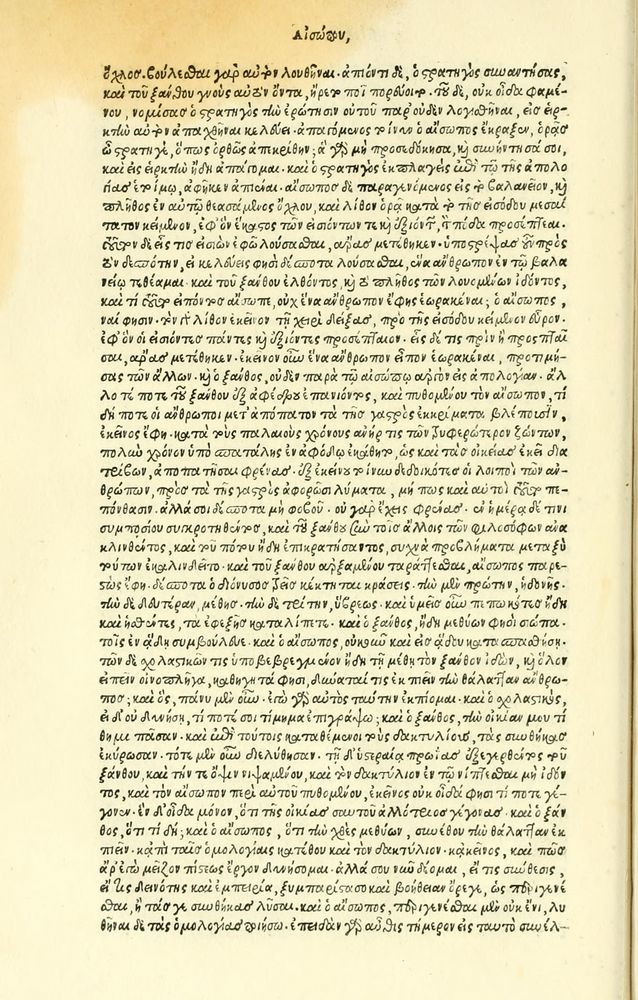 Αἰσώπου,
ὄχλος. βούλεσθαι γὰρ αὐτὸν λουθῆναι. ἀπιόντι δὲ, ὁ στρατηγὸς συναντήσας,
καὶ τοῦ ξάνθου γνοὺς αὐτὸν ὄντα, ἤρετο ποῖ πορεύοιτο. τοῦ δὲ, οὐκ οἶδα φαμέ-
νου, νομίσας ὁ στρατηγὸς τὴν ἐρώτησιν αὑτοῦ παρ' οὐδὲν λογισθῆναι, εἰς εἱρ-
κτὴν αὐτὸν ἀπαχθῆναι κελεύει. ἀπαγόμενος τοίνυν ὁ αἴσωπος ἔκραξεν, ὁρᾷς
ὦ στρατηγὲ, ὅπως ὀρθῶς ἀπεκρίθην; ἃ γὰρ μὴ προσεδόκησα, καὶ συνήντησά σοι,
καὶ εἰς εἱρκτὴν ἤδη ἀπάγομαι. καὶ ὁ στρατηγὸς ἐκπλαγεὶς ἐπὶ τῷ τῆς ἀπολο
γίας ἑτοίμῳ, ἀφῆκεν ἀπιέναι. αἴσωπος δὲ παραγενόμενος εἰς τὸ βαλανεῖον, καὶ
πλῆθος ἐν αὐτῷ θεασάμενος ὄχλου, καὶ λίθον ὁρᾷ κατὰ τὸ τῆς εἰσόδου μεσαί
τατον κείμενον, ἐφ' ὃν ἕκαστος τῶν εἰσιόντων τε καὶ ἐξιόντων, τὸν πόδα προσέπταιε.
τοῦτον δὲ εἷς τις εἰσιὼν ἐφ' ᾧ λούσασθαι, ἄρας μετέθηκεν. ὑποστρέψας οὖν πρὸς
τὸν δεσπότην, εἰ κελεύεις φησὶ δέσποτα λούσασθαι, ἕνα ἄνθρωπον ἐν τῷ βαλα
νείῳ τεθέαμαι. καὶ τοῦ ξάνθου ἐλθόντος, καὶ τὸ πλῆθος τῶν λουομένων ἰδόντος,
καὶ τί τοῦτο εἰπόντος αἴσωπε, οὐχ ἕνα ἄνθρωπον ἔφης ἑωρακέναι; ὁ αἴσωπος,
ναί φησιν. τὸν γὰρ λίθον ἐκεῖνον τῇ χειρὶ δείξας, πρὸ τῆς εἰσόδου κείμενον εὗρον.
ἐφ' ὃν οἱ εἰσιόντες πάντες καὶ ἐξιόντες προσέπταιον. εἷς δέ τις πρὶν ἢ προσπταῖ
σαι, ἄρας μετέθηκεν. ἐκεῖνον οὖν ἕνα ἄνθρωπον εἶπον ἑωρακέναι, προτιμή-
σας τῶν ἄλλων. καὶ ὁ ξάνθος, οὐδὲν παρὰ τῷ αἰσώπῳ ἀργὸν εἰς ἀπολογίαν. ἄλ
λοτέ ποτε τοῦ ξάνθου ἐξ ἀφέδρου ἐπανιόντος, καὶ πυθομένου τὸν αἴσωπον, τί
δή ποτε οἱ ἄνθρωποι μετ' ἀπόπατον τὰ τῆς γαστρὸς ἐκκρίματα βλέπουσιν,
ἐκεῖνος ἔφη. κατὰ τοὺς παλαιοὺς χρόνους ἀνήρ τις τῶν τρυφερώτερον ζώντων,
πολὺν χρόνον ὑπὸ σπατάλης ἐν ἀφόδῳ ἐκάθητο, ὡς καὶ τὰς οἰκείας ἐκεῖ δια
τρίβων, ἀποπατῆσαι φρένας. ἐξ ἐκείνου τοίνυν δεδοικότες οἱ λοιποὶ τῶν ἀν-
θρώπων, πρὸς τὰ τῆς γαστρὸς ἀφορῶσι λύματα, μή πως καὶ αὐτοὶ τοῦτο πε-
πόνθασιν. ἀλλὰ σὺ δέσποτα μὴ φοβοῦ. οὐ γὰρ ἔχεις φρένας. ἐν ἡμέρᾳ δέ τινι
συμποσίου συγκροτηθέντος, καὶ τοῦ ξάνθου σὺν τοῖς ἄλλοις τῶν φιλοσόφων ἀνα
κλινθέντος, καὶ τοῦ πότου ἤδη ἐπικρατήσαντος, συχνὰ προβλήματα μεταξὺ
τούτων ἐκαλινδεῖτο. καὶ τοῦ ξάνθου ἀρξαμένου ταράττεσθαι, αἴσωπος παρε-
στὼς ἔφη. δέσποτα ὁ διόνυσος τρεῖς κέκτηται κράσεις. τὴν μὲν πρώτην, ἡδονῆς.
τὴν δὲ δευτέραν, μέθης. τὴν δὲ τρίτην, ὕβρεως. καὶ ὑμεῖς οὖν πεπωκότες ἤδη
καὶ ἡσθέντες, τὰ ἐφεξῆς καταλίπετε. καὶ ὁ ξάνθος, ἤδη μεθύων φησὶ σιώπα.
τοῖς ἐν ᾅδη συμβούλευε. καὶ ὁ αἴσωπος, οὐκοῦν καὶ εἰς ᾅδου κατασπασθήσῃ.
τῶν δὲ σχολαστικῶν τις ὑποβεβρεγμένον ἤδη τῇ μέθη τὸν ξάνθον ἰδὼν, καὶ ὅλον
εἰπεῖν οἰνοπλῆγα, καθηγητά φησι, δύναταί τις ἐκπιεῖν τὴν θάλατταν ἄνθρω
πος; καὶ ὃς, πάνυ μὲν οὖν. ἐγὼ γὰρ αὐτὸς ταύτην ἐκπίομαι. καὶ ὁ σχολαστικὸς,
εἰ δ' οὐ δυνήσῃ, τί ποτέ σοι τίμημα ἐπιγράψω; καὶ ὁ ξάνθος, τὴν οἰκίαν μου τί
θημι πᾶσαν. καὶ ἐπὶ τούτοις καταθέμενοι τοὺς δακτυλίους, τὰς συνθήκας
ἐκύρωσαν. τότε μὲν οὖν διελύθησαν. τῇ δ' ὑστεραίᾳ πρωίας ἐξεγερθέντος τοῦ
ξάνθου, καὶ τήν τε ὄψιν νιψαμένου, καὶ τὸν δακτύλιον ἐν τῷ νίπτεσθαι μὴ ἰδόν
τος, καὶ τὸν αἴσωπον περὶ αὐτοῦ πυθομένου, ἐκεῖνος οὐκ οἶδά φησι τί ποτε γέ-
γονεν. ἓν δ' οἶδα μόνον, ὅτι τῆς οἰκίας σαυτοῦ ἀλλότριος γέγονας. καὶ ὁ ξάν
θος, ὅτι τί δή; καὶ ὁ αἴσωπος, ὅτι τὴν χθὲς μεθύων, συνέθου τὴν θάλατταν ἐκ
πιεῖν. κἀπὶ ταῖς ὁμολογίαις κατέθου καὶ τὸν δακτύλιον. κἀκεῖνος, καὶ πῶς
ἄρ' ἐγὼ μεῖζον πίστεως ἔργον δυνήσομαι. ἀλλὰ σοῦ νῦν δέομαι, εἴ τις σύνεσις,
εἴ τις δεινότης καὶ ἐμπειρία, ξυμπαρίστασο καὶ βοήθειαν ὄρεγε, ὡς περιγενέ
σθαι, ἢ τάς γε συνθήκας λῦσαι. καὶ ὁ αἴσωπος, περιγενέσθαι μὲν οὐκ ἔνι, λυ
θῆναι δὲ τὰς ὁμολογίας ποιήσω. ἐπειδὰν γὰρ αὖθις τήμερον εἰς ταὐτὸ συνέλ-